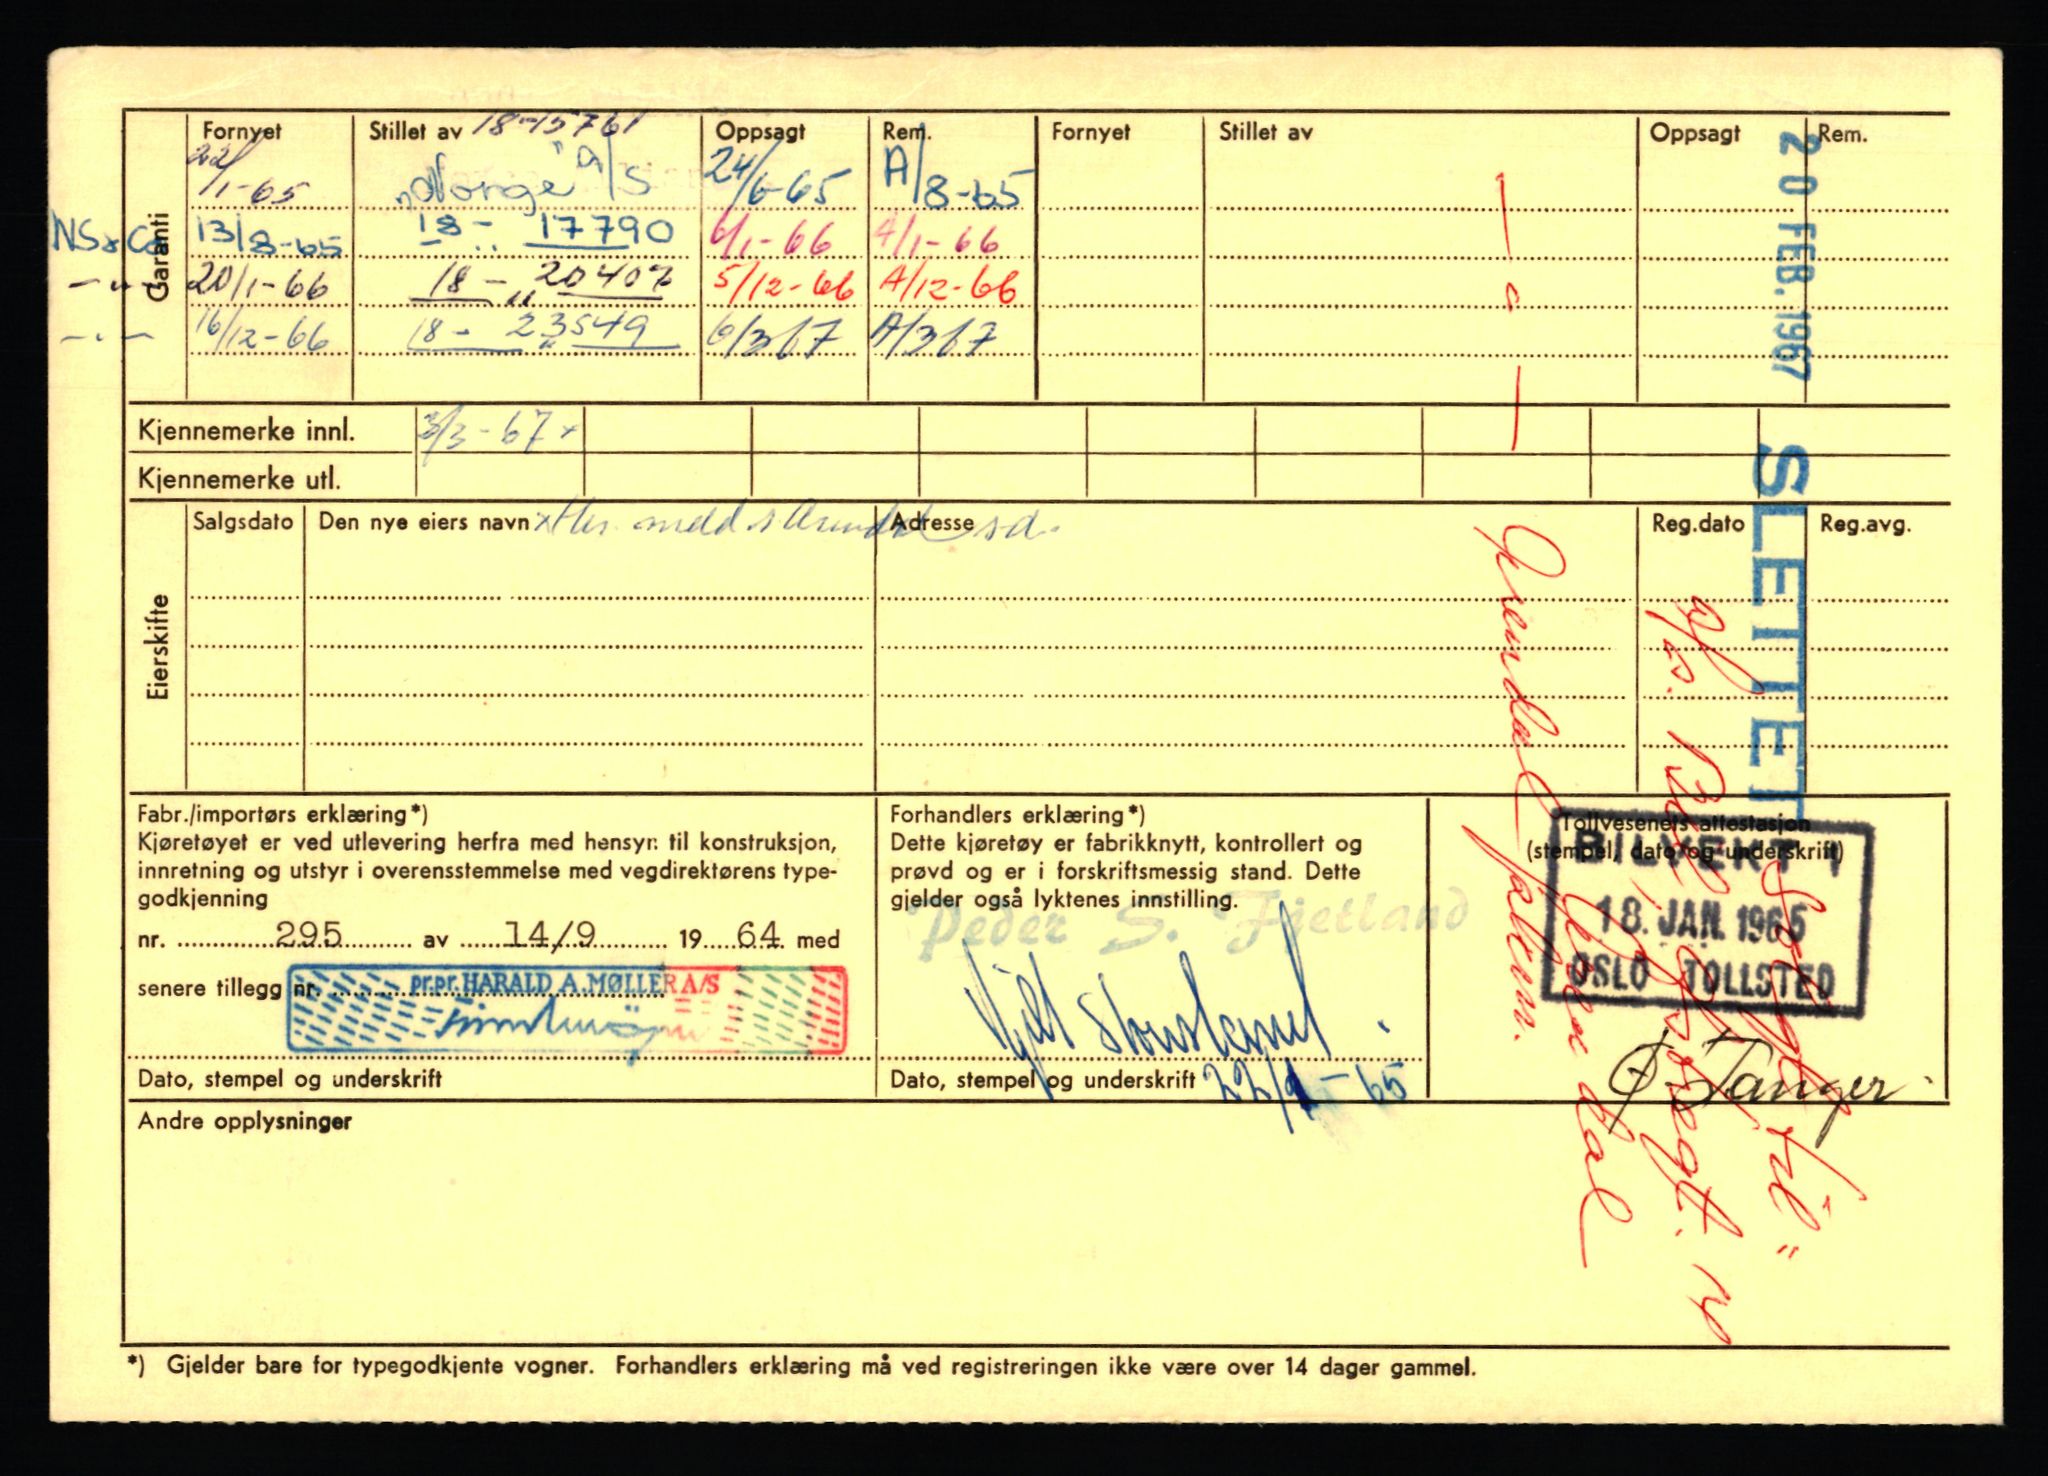 Garanti
Fornyet Stillet av 18-15761 Oppsagt Rem. Fornyet Stillet av Oppsagt Rem.
22/1-65 "Norge" A/S 24/6-65 A/8-65
NS & Co 13/8-65 18- 17790 6/1-66 A/1-66
— " — 20/1-66 18 - 20407 5/12-66 A/12-66
— " — 16/12-66 18 - 23549 6/3 67 A/3 67
Kjennemerke innl. 3/3-67 x
Kjennemerke utl.
Eierskifte
Salgsdato Den nye eiers navn Adresse Reg.dato Reg.avg.
x meld Arendal s.d.
20 FEB. 1967 SLETTET
Solgt til
A/S
Arendal
Fabr./importørs erklæring*)
Kjøretøyet er ved utlevering herfra med hensyn til konstruksjon,
innretning og utstyr i overensstemmelse med vegdirektørens type-
godkjenning
nr. 295 av 14/9 19 64 med
senere tillegg nr.
pr.pr. HARALD A. MØLLER A/S
Dato, stempel og underskrift
Forhandlers erklæring*)
Dette kjøretøy er fabrikknytt, kontrollert og
prøvd og er i forskriftsmessig stand. Dette
gjelder også lyktenes innstilling.
Peder S. Fjetland
Dato, stempel og underskrift 22/1-65
Tollvesenets attestasjon
(stempel, dato og underskrift)
BILVEKT
18. JAN. 1965
OSLO TOLLSTED
Ø Tanger
Andre opplysninger
*) Gjelder bare for typegodkjente vogner. Forhandlers erklæring må ved registreringen ikke være over 14 dager gammel.